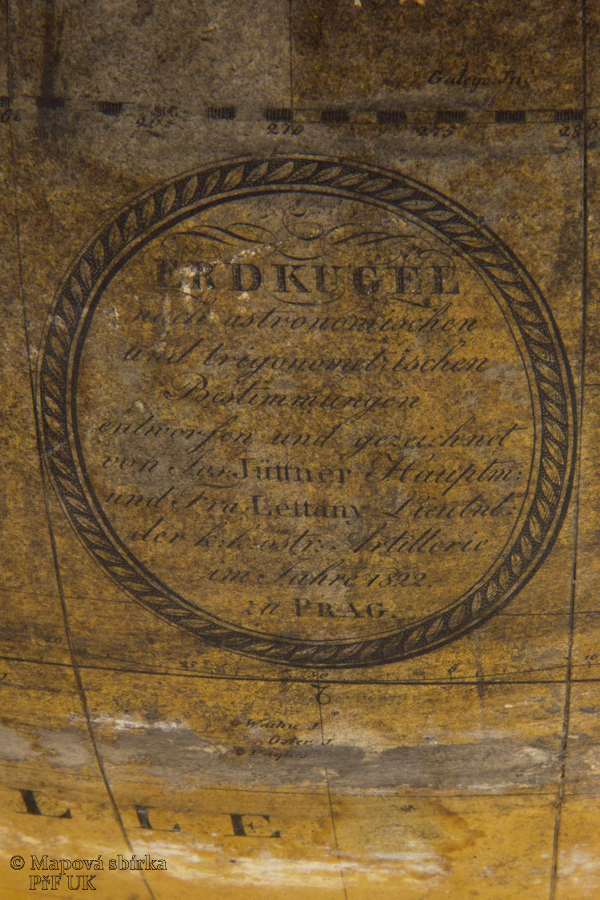 Galego In.
265
270
275
28
ERDKUGEL
nach astronomischen
und trigonometrischen
Bestimmungen
entworfen und gezeichnet
von Jos. Jüttner Hauptm:
und Fra. Lettany Lieutnt:
der k:k: östr: Artillerie
im Jahre 1822
zu PRAG.
Oster I.
LLE
© Mapová sbírka
PřF UK